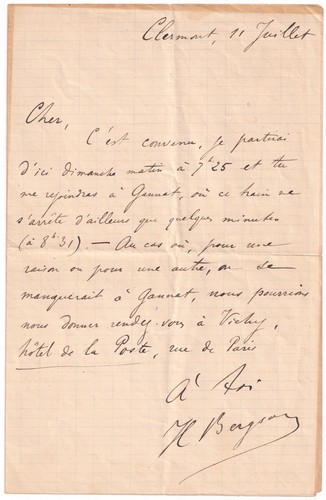 Clermont, 11 Juillet
Cher,
C'est convenu, je partirai
d'ici dimanche matin à 7h25 et tu
me rejoindras à Gannat, où ce train ne
s'arrête d'ailleurs que quelques minutes
(à 8h31). — Au cas où, pour une
raison ou pour une autre, on se
manquerait à Gannat, nous pourrions
nous donner rendez-vous à Vichy,
hôtel de la Poste, rue de Paris
A toi
H Bergson